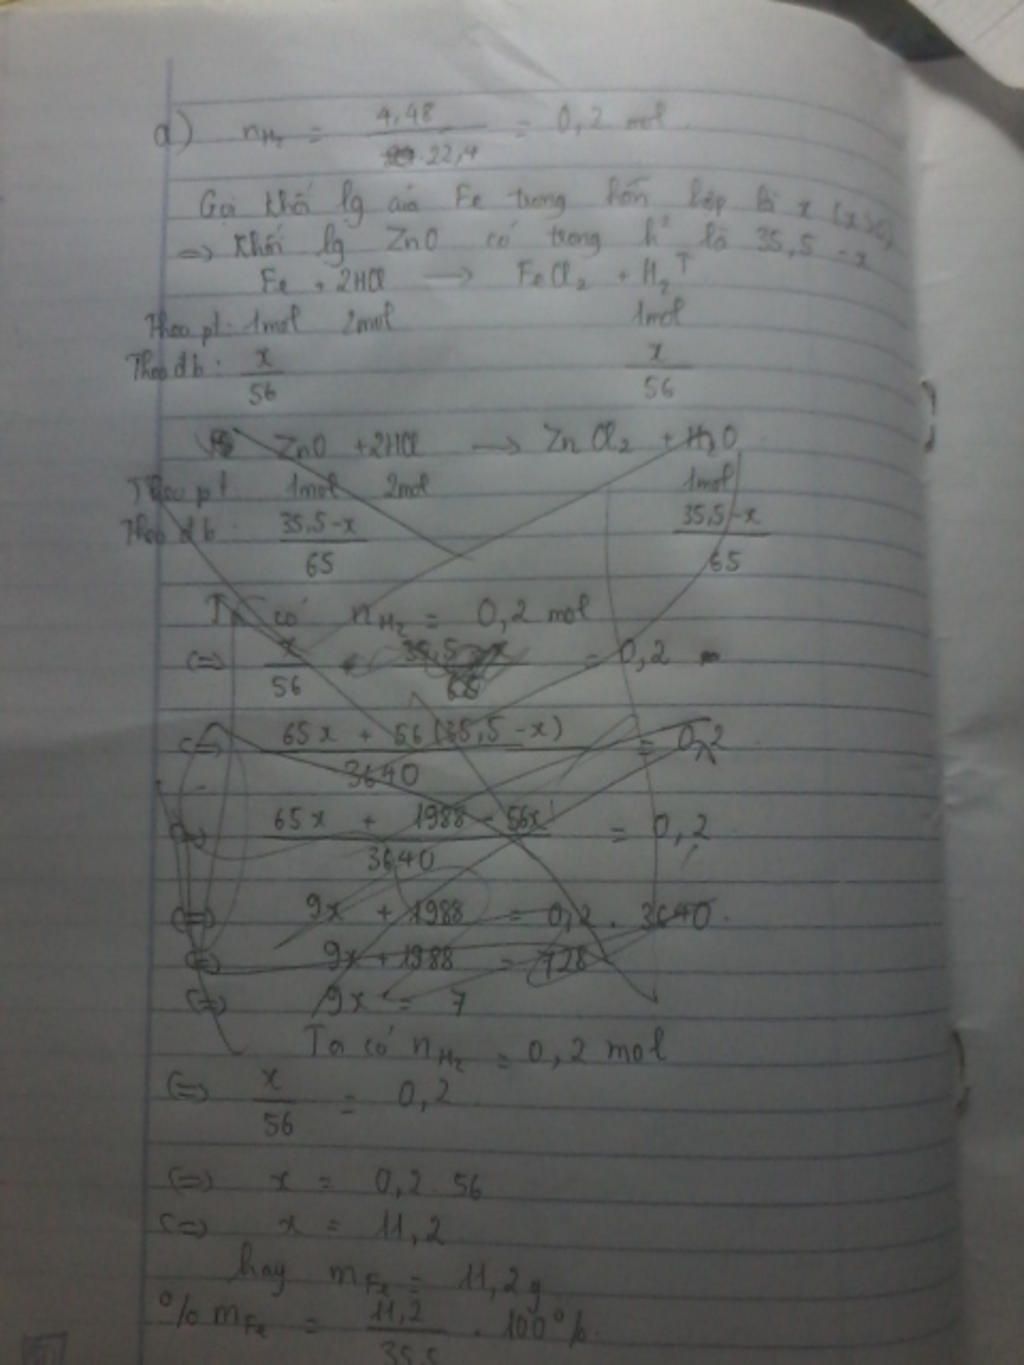 a) nH₂ = 4,48 / 22,4 = 0,2 mol.
Gọi khối lg của Fe trong hỗn hợp là x (x>0)
=> Khối lg ZnO có trong h² là 35,5 - x
Fe + 2HCl → FeCl₂ + H₂↑
Theo pt: 1mol 2mol 1mol
Theo đb: x/56 x/56
ZnO + 2HCl → ZnCl₂ + H₂O
Theo pt 1mol 2mol 1mol
Theo đb (35,5-x)/65 (35,5-x)/65
Ta có nH₂ = 0,2 mol
(=) x/56 = 0,2
(=) (65x + 56(35,5-x))/3640 = 0,2
(=) (65x + 1988 - 56x)/3640 = 0,2
(=) 9x + 1988 = 0,2 . 3640.
(=) 9x + 1988 = 728
(=) 9x = 7
Ta có nH₂ = 0,2 mol
(=) x/56 = 0,2
(=) x = 0,2 . 56
(=) x = 11,2
hay mFe = 11,2g
% mFe = 11,2/35,5 . 100%